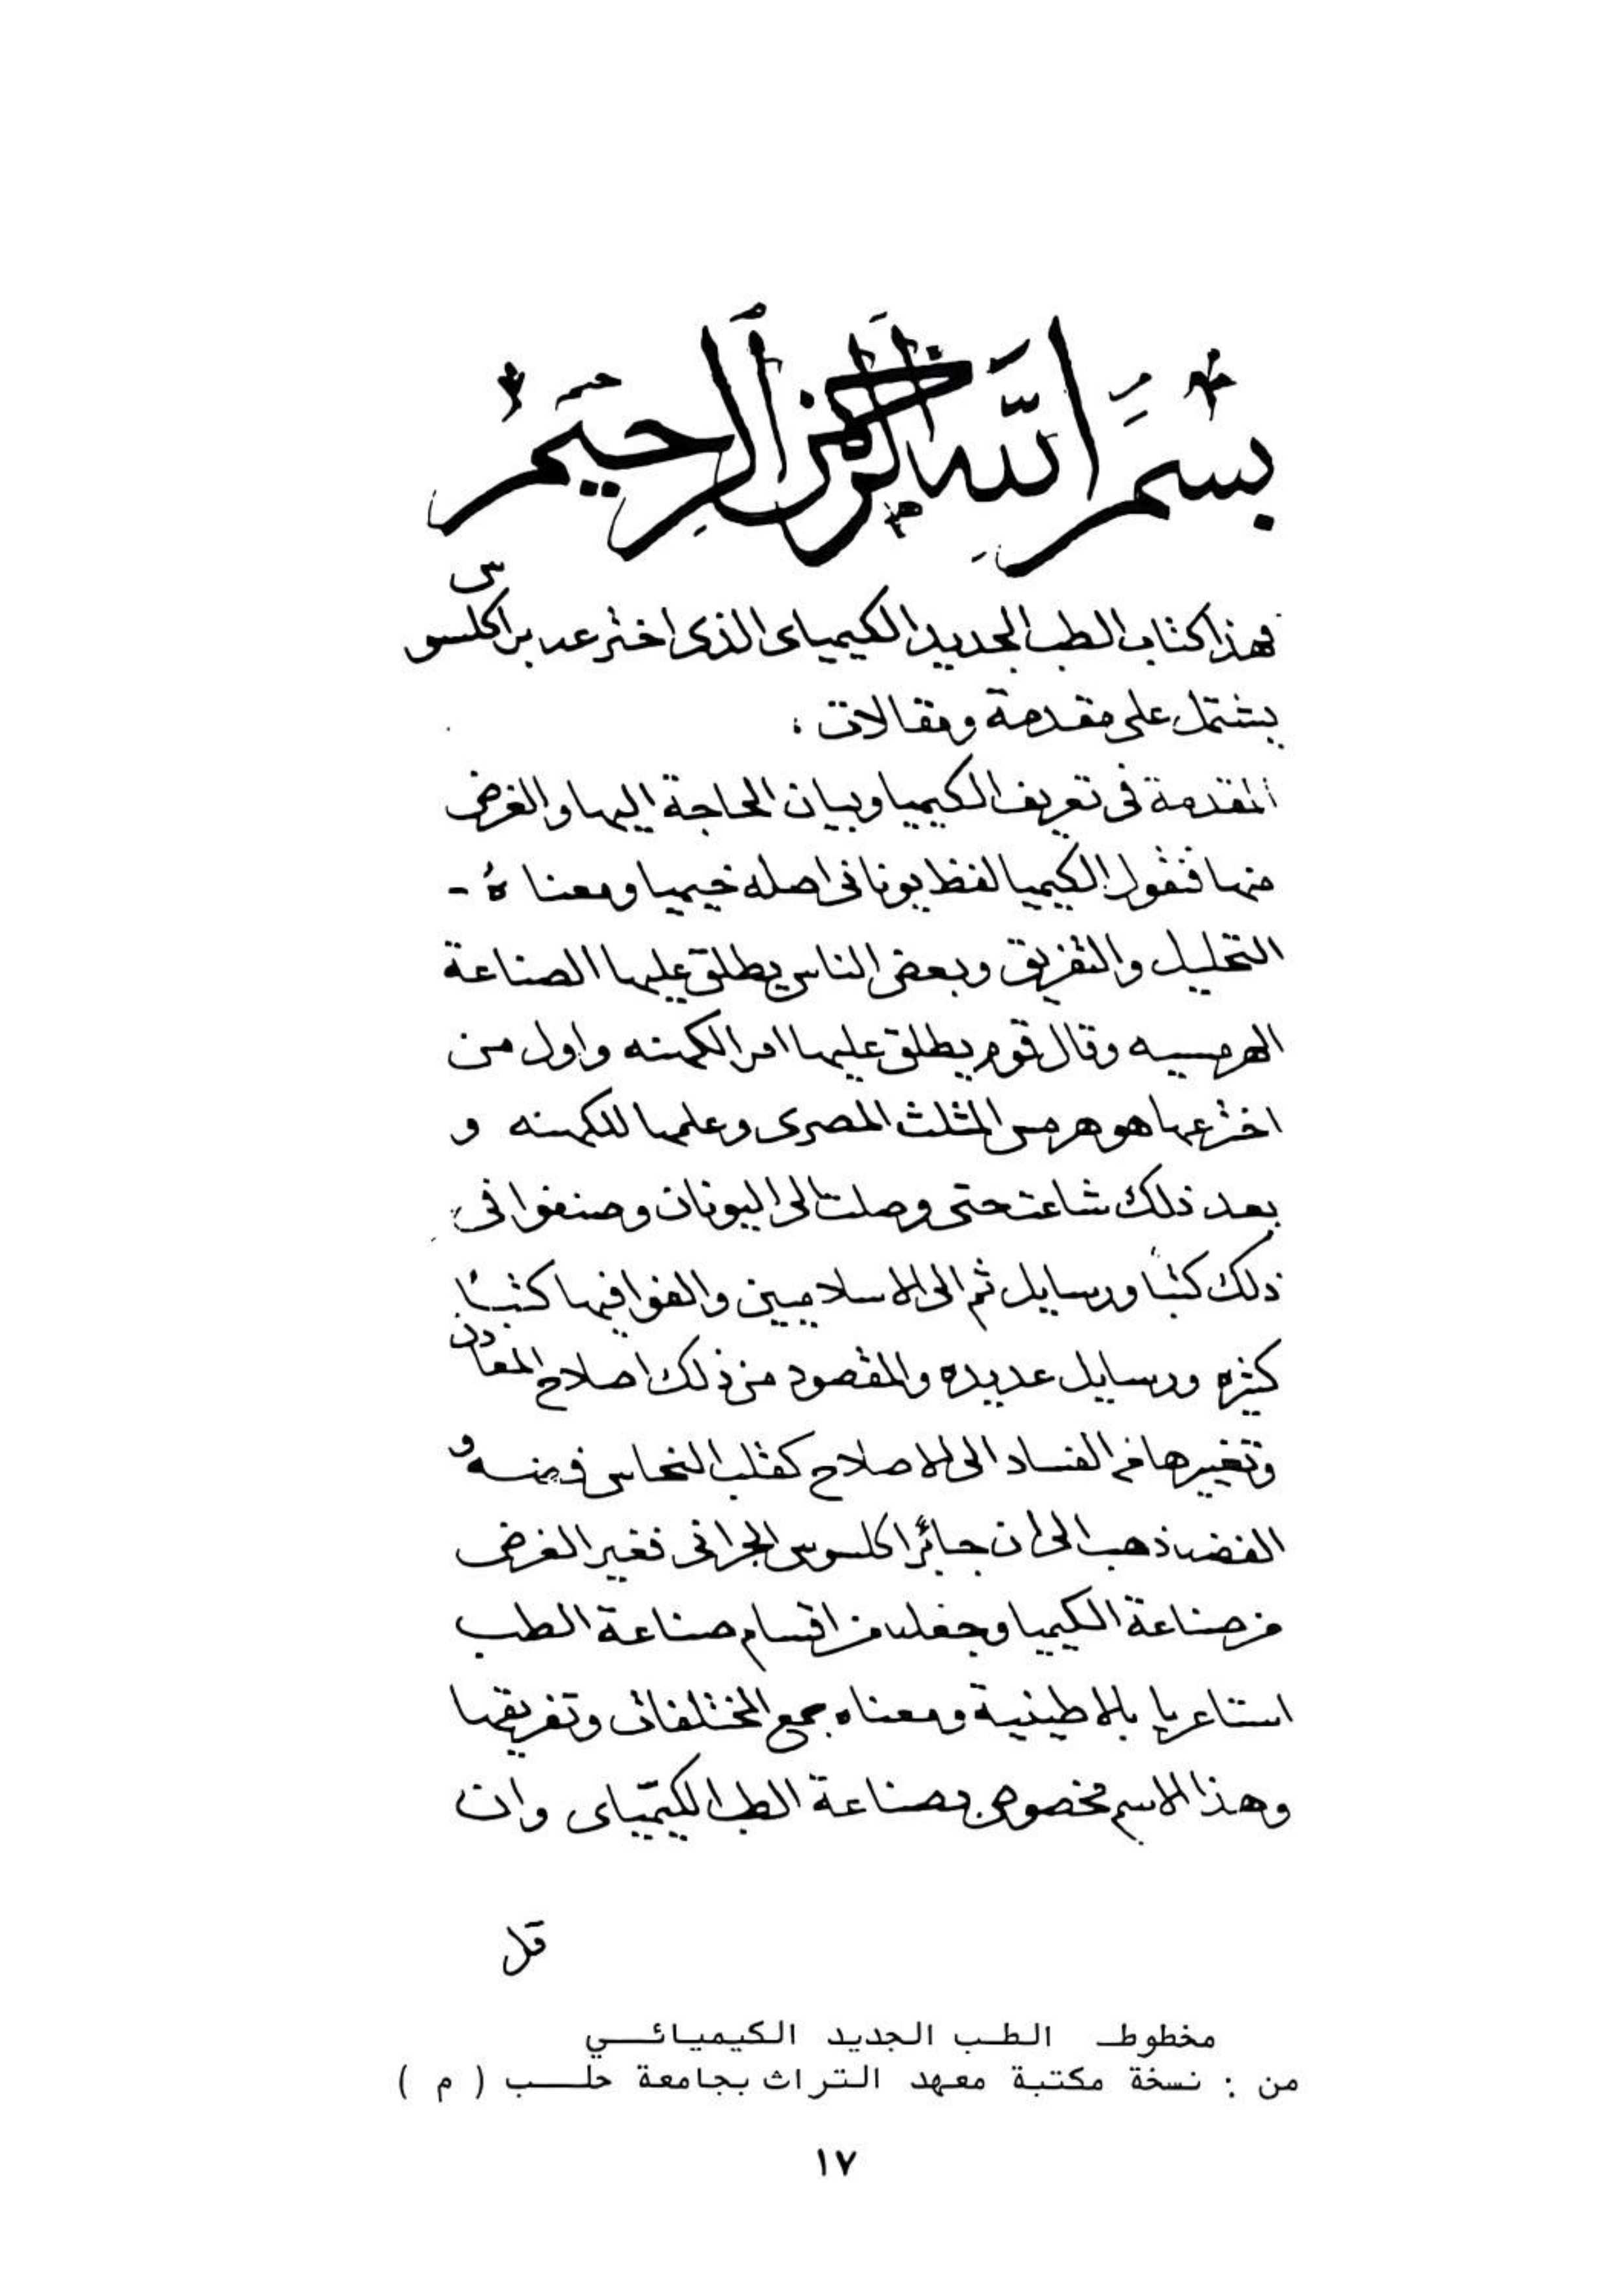 بسم الله الرحمن الرحيم
فهذا كتاب الطب الجديد الكيمياى الذى اخترعه براكلسوس
يشتمل على مقدمة ومقالات ،
المقدمة فى تعريف الكيميا وبيان الحاجة اليها والغرض
منها فنقول الكيميا لفظ يونانى اصله خيميا ومعناه -
التحليل والتفريق وبعض الناس يطلق عليها الصناعة
الهرمسيه وقال قوم يطلق عليها امر الكهنه واول من
اخترعها هو هرمس المثلث المصرى وعلمها للكهنه و
بعد ذلك شاعت حتى وصلت الى اليونان وصنفوا فى
ذلك كتبًا ورسايل ثم الى الاسلاميين والفوا فيها كتبًا
كثيره ورسايل عديده والمقصود من ذلك اصلاح المعادن
وتغييرها من الفساد الى الاصلاح كقلب النحاس فضه و
الفضه ذهب الى ان جا براكلسوس الجرمانى فغير الغرض
من صناعة الكيميا وجعله من اقسام صناعة الطب
اسباعريا بالاطينية ومعناه جمع المختلفات وتفريقها
وهذا الاسم مخصوص بصناعة الطب الكيمياى وان
قل
مخطوط الطب الجديد الكيميائي
من : نسخة مكتبة معهد التراث بجامعة حلب ( م )
١٧